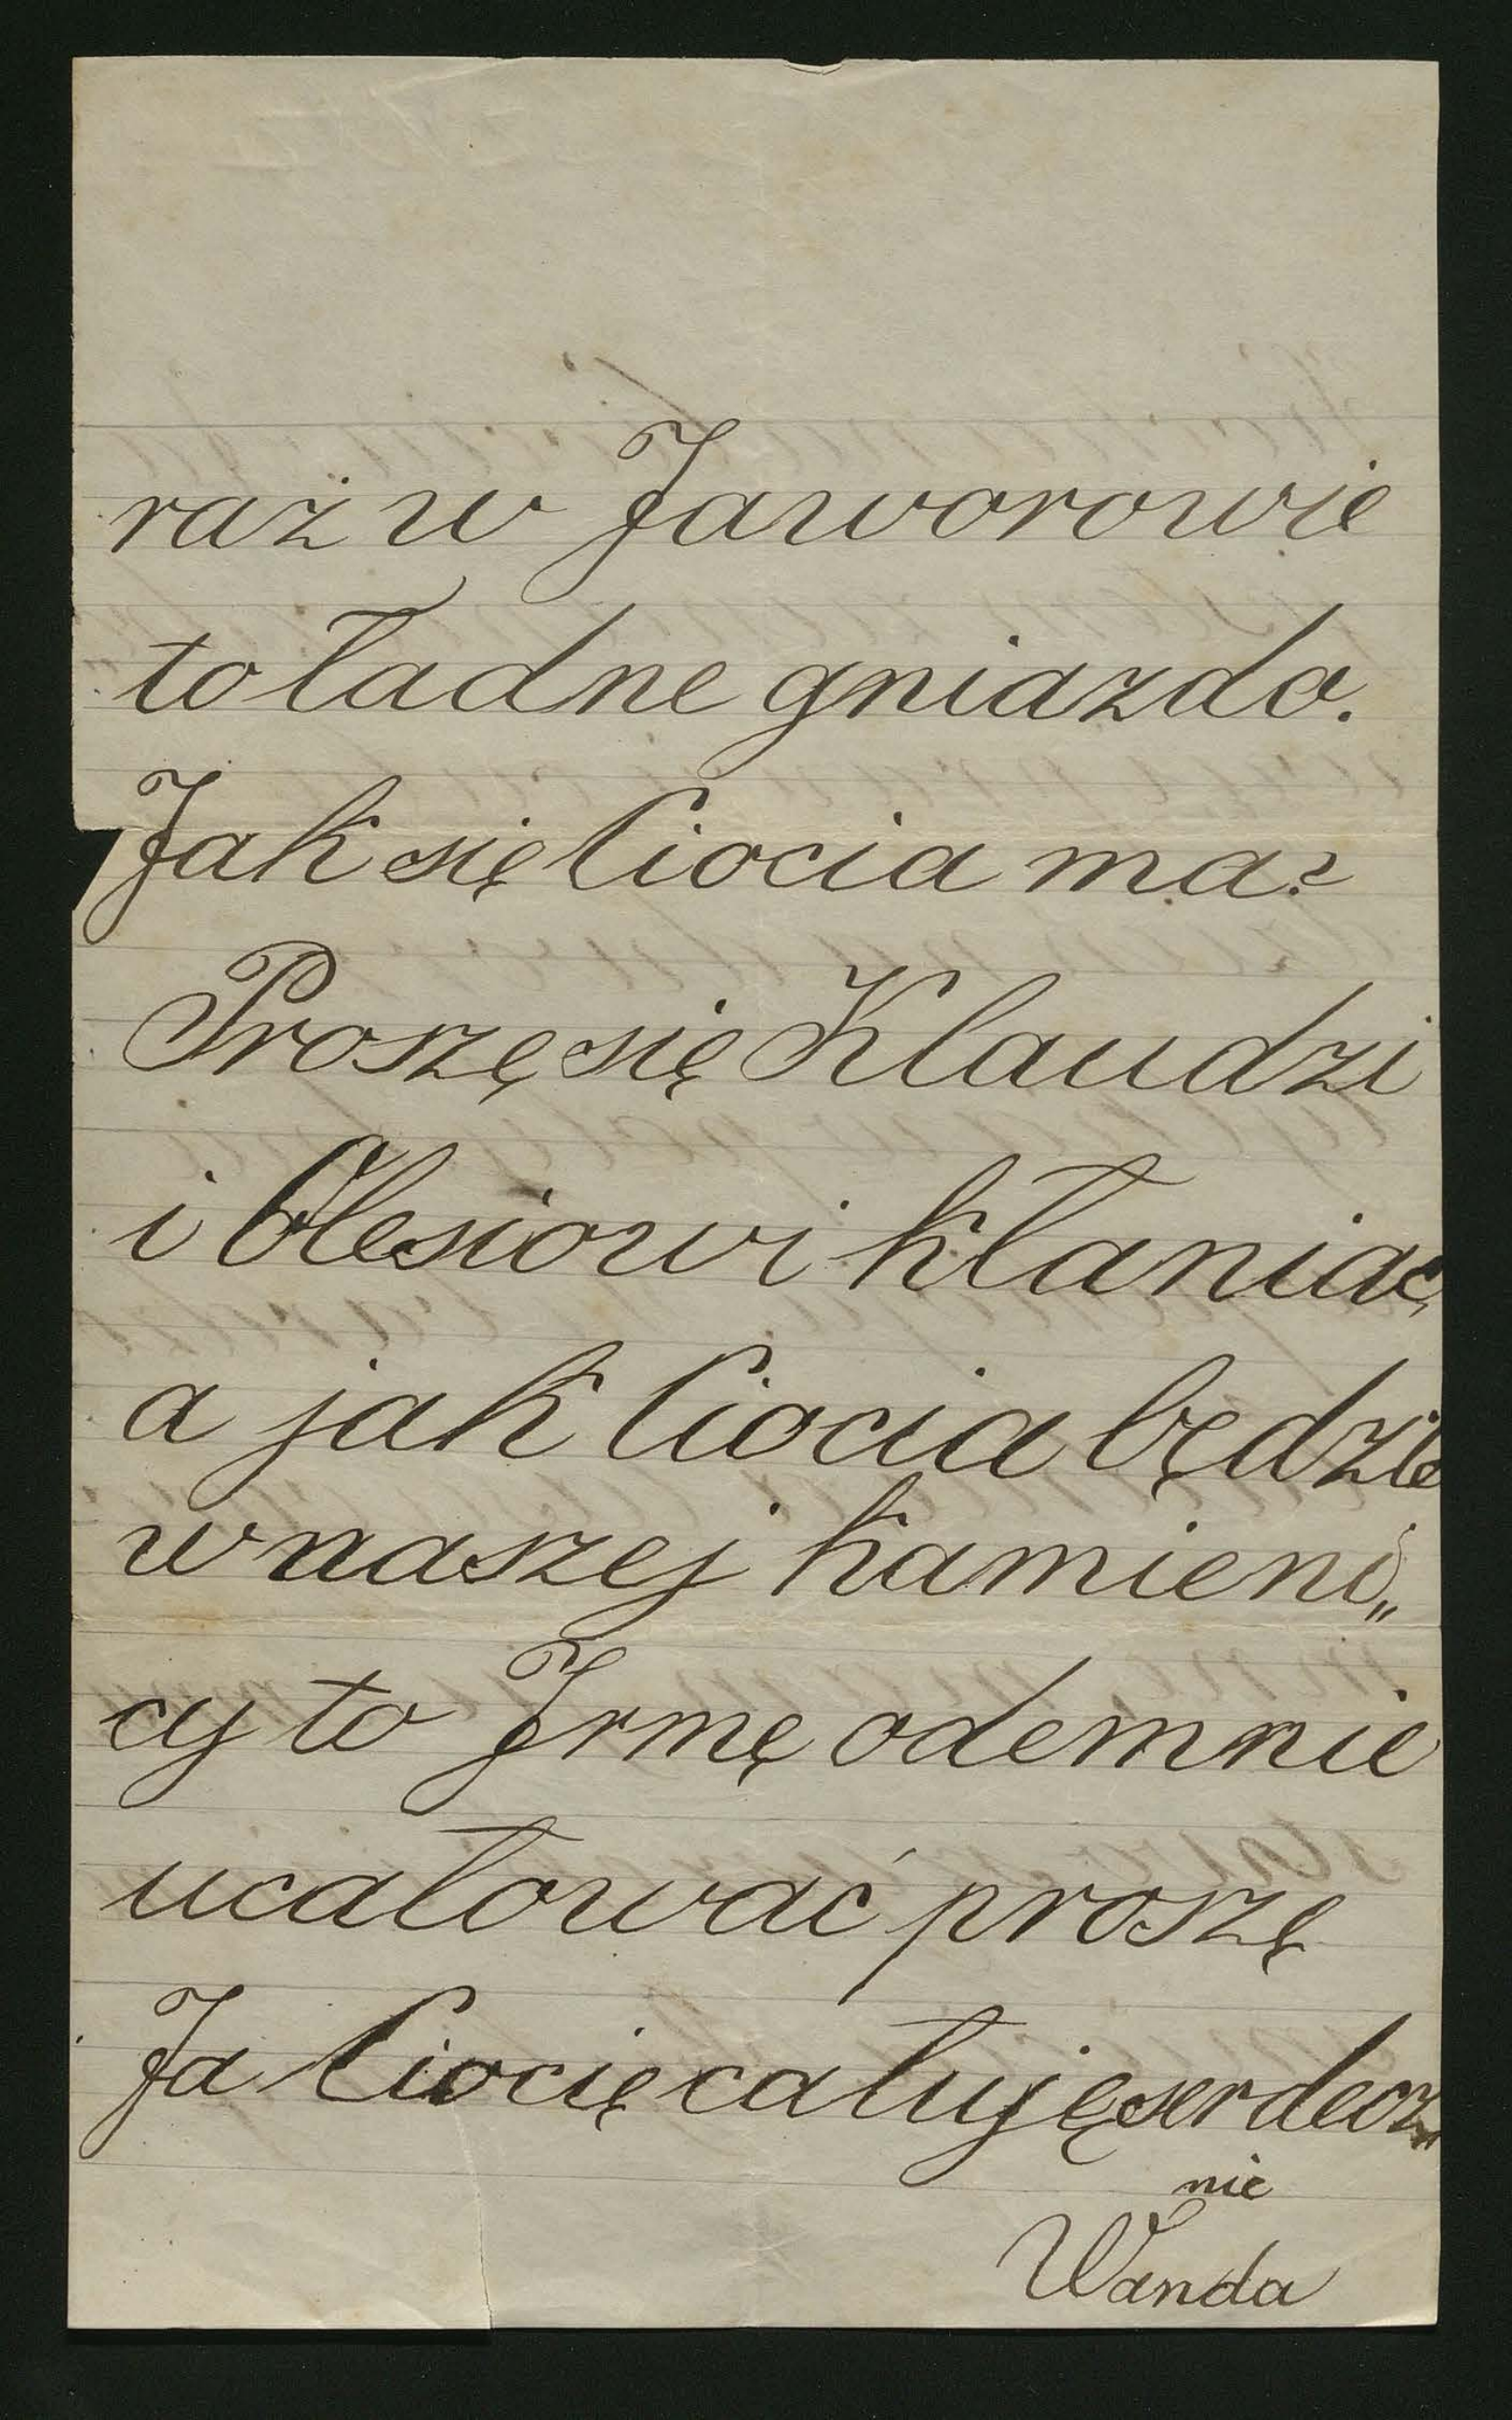 raz w Jaworowie
to ładne gniazdo.
Jak się Ciocia ma?
Proszę się Klaudzi
i Olesiowi kłaniać,
a jak Ciocia będzie
w naszej kamieni„
cy to Irmę odemnie
ucałować proszę
Ja Ciocię całuję serdecz„
nie
Wanda